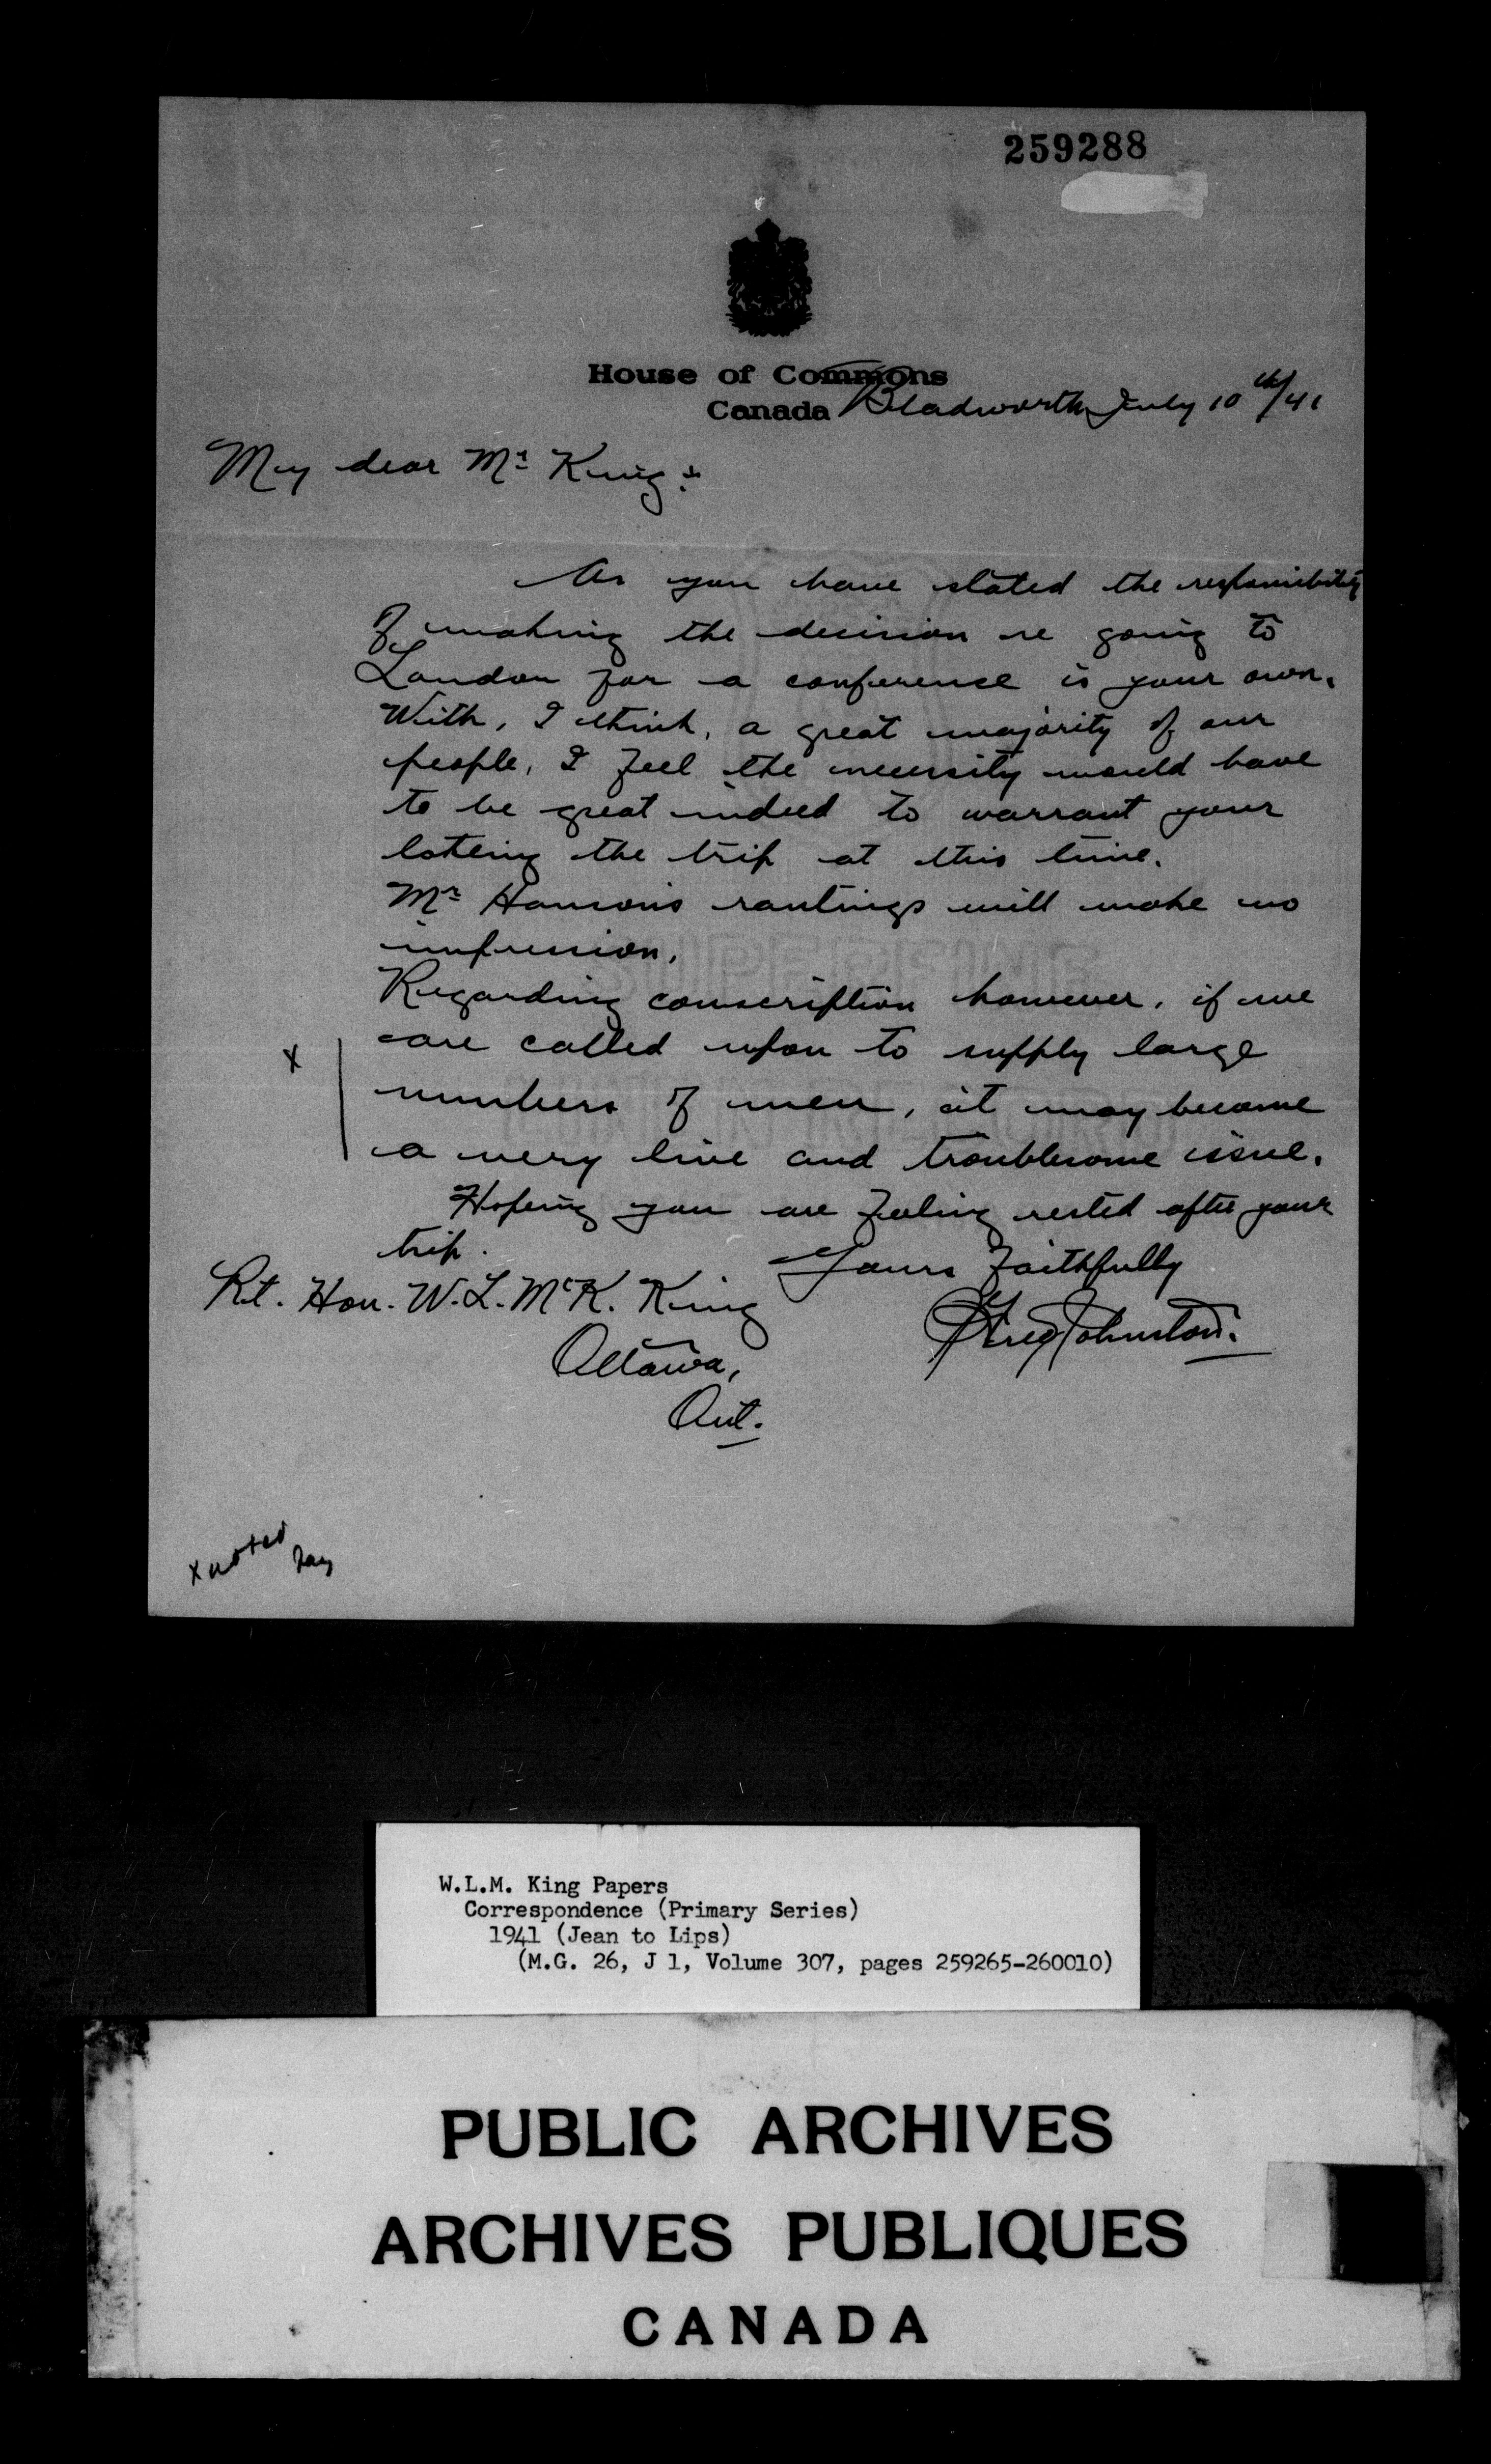 259288
House of Commons
Canada Bladworth July 10th/41
My dear Mr King:
As you have stated the responsibility
of making the decision re going to
London for a conference is your own.
With, I think, a great majority of our
people, I feel the necessity would have
to be great indeed to warrant your
taking the trip at this time.
Mr Hanson's rantings will make no
impression.
Regarding conscription however, if we
x are called upon to supply large
numbers of men, it may become
a very live and troublesome issue.
Hoping you are feeling rested after your
trip.
Yours Faithfully
Rt. Hon. W. L. McK. King
Johnston.
Ottawa,
Ont.
x noted
W.L.M. King Papers
Correspondence (Primary Series)
1941 (Jean to Lips)
(M.G. 26, J 1, Volume 307, pages 259265-260010)
PUBLIC ARCHIVES
ARCHIVES PUBLIQUES
CANADA